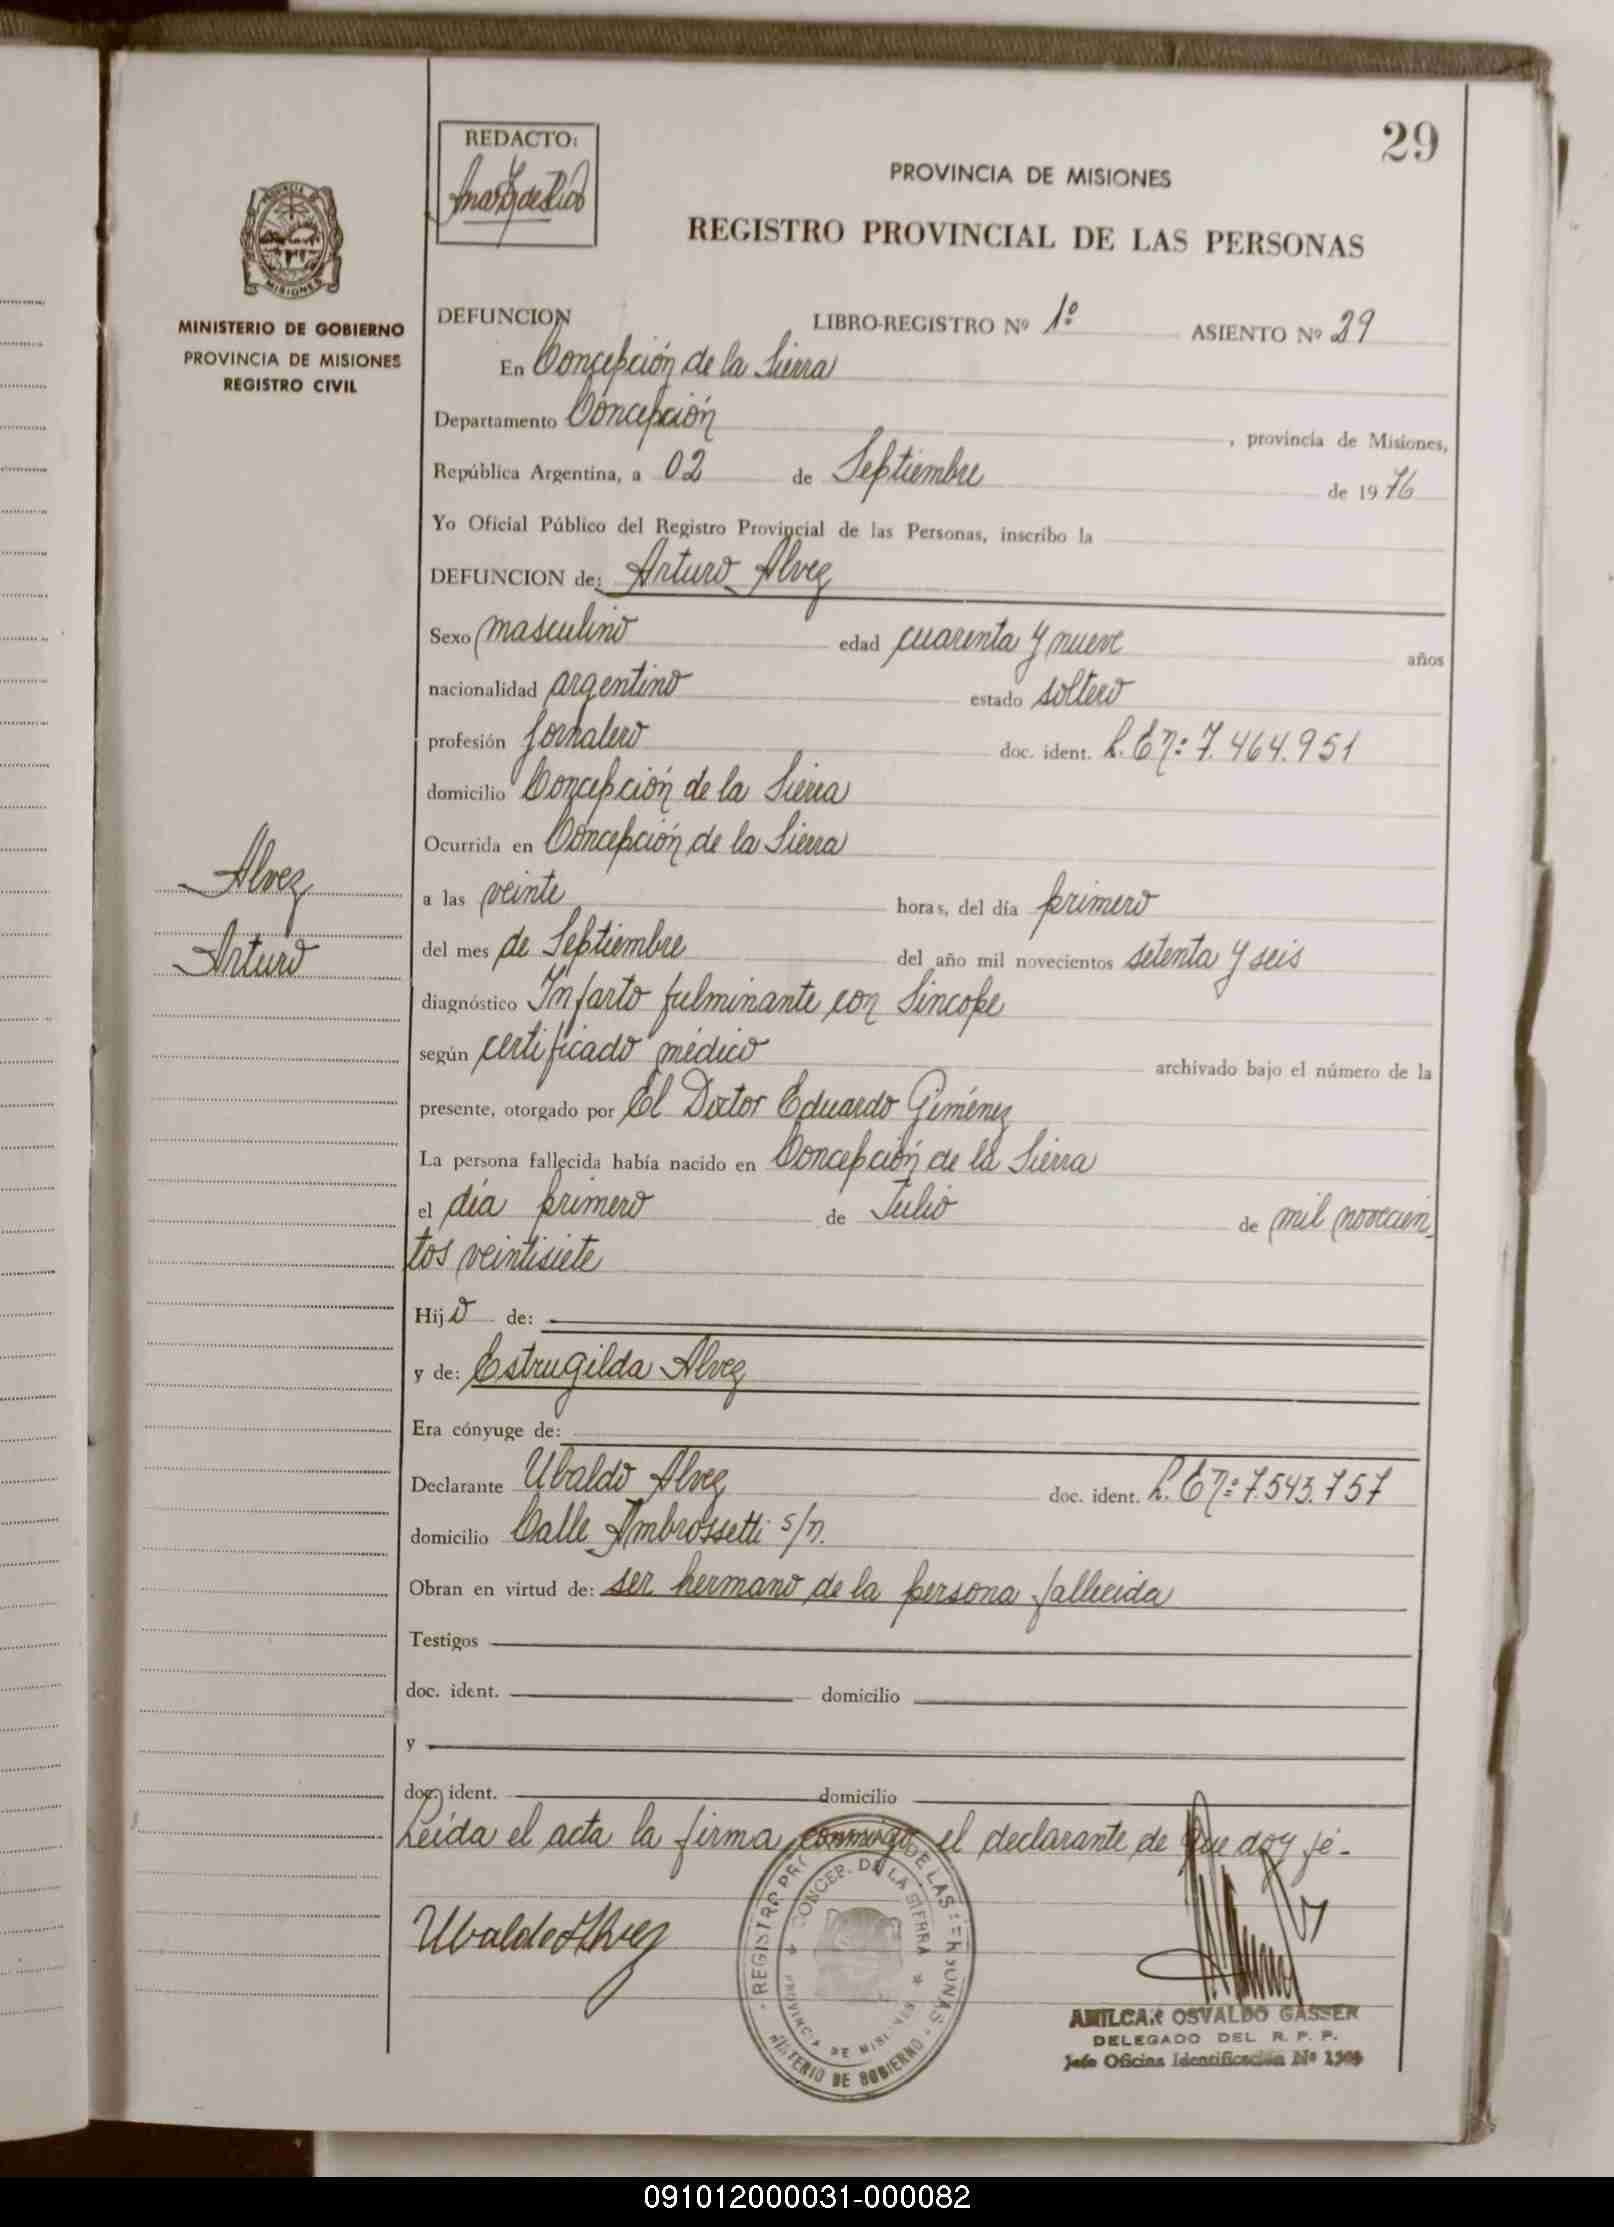 29
REDACTO:
PROVINCIA DE MISIONES
REGISTRO PROVINCIAL DE LAS PERSONAS
MISIONES
MINISTERIO DE GOBIERNO
PROVINCIA DE MISIONES
REGISTRO CIVIL
DEFUNCION LIBRO-REGISTRO Nº 1º ASIENTO Nº 29
En Concepción de la Sierra
Departamento Concepción, provincia de Misiones,
República Argentina, a 02 de Septiembre de 1976
Yo Oficial Público del Registro Provincial de las Personas, inscribo la
DEFUNCION de: Arturo Alvez
Sexo masculino edad cuarenta y nueve años
nacionalidad argentino estado soltero
profesión Jornalero doc. ident. L. E nº: 7.464.951
domicilio Concepción de la Sierra
Ocurrida en Concepción de la Sierra
Alvez
Arturo
a las veinte horas, del día primero
del mes de Septiembre del año mil novecientos setenta y seis
diagnóstico Infarto fulminante con Sincope
según certificado médico archivado bajo el número de la
presente, otorgado por El Doctor Eduardo Giménez
La persona fallecida había nacido en Concepción de la Sierra
el día primero de Julio de mil novecien
tos veintisiete
Hijo de:
y de: Estrugilda Alvez
Era cónyuge de:
Declarante Ubaldo Alvez doc. ident. L. E nº: 7.543.757
domicilio Calle Ambrossetti s/n.
Obran en virtud de: ser hermano de la persona fallecida
Testigos
doc. ident. domicilio
y
doc. ident. domicilio
Leída el acta la firma conmigo el declarante de que doy fé.-
Ubaldo Alvez
CONCEP. DE LA SIERRA
PROVINCIA DE MISIONES
AMILCAR OSVALDO GASSER
DELEGADO DEL R. P. P.
Jefe Oficina Identificación Nº
091012000031-000082